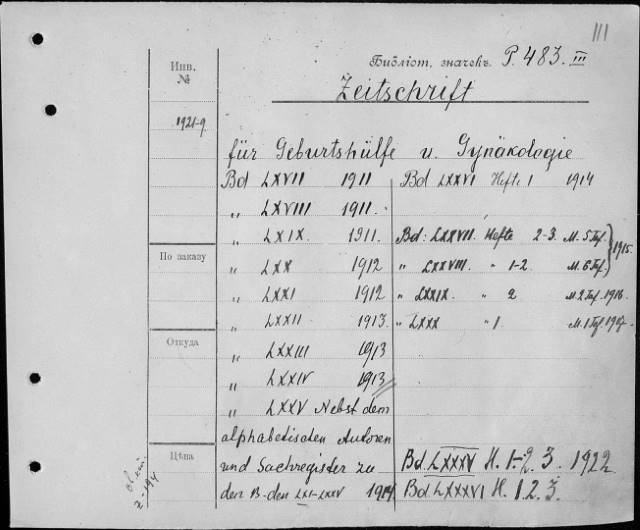 III
Библіот. значекъ P. 483. III
Zeitschrift
Инв.
№
1921-9.
für Geburtshülfe u. Gynäkologie
Bd LXVII 1911
Bd LXXVI Heft. 1 1914
„ LXVIII 1911.
„ LXIX. 1911.
Bd: LXXVII. Hefte 2-3. M. 5 Taf. } 1915.
По заказу
„ LXX 1912
„ LXXVIII. „ 1-2. M. 6 Taf.
„ LXXI 1912
„ LXXIX. „ 2 M. 2 Taf. 1916.
„ LXXII 1913.
„ LXXX „ 1. M. 1 Taf. 1917.
Откуда
„ LXXIII 1913
„ LXXIV 1913
„ LXXV Nebst dem
alphabetischen Autoren
Цѣна
und Sachregister zu
den B-den LXI-LXXV 1914
Bd. LXXXV H. 1-2. 3. 1922
Bd. LXXXVI H. 1. 2. 3.